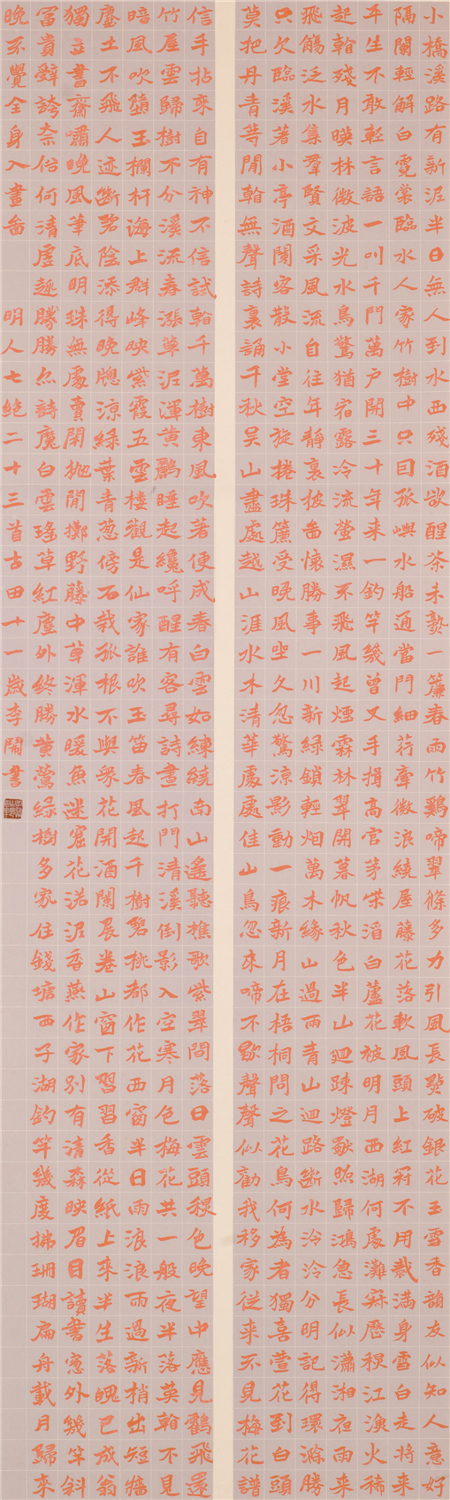 小橋溪路有新泥半日無人到水西殘酒欲醒茶未熟一簾春雨竹鷄啼翠篠多力引風長點破銀花玉雪香韻友似知人意好
隔闌輕解白霓裳臨水人家竹樹中只因孤嶼水船通當門細荇牽微浪繞屋藤花落軟風頭上紅冠不用裁滿身雪白走將來
平生不敢輕言語一叫千門萬戶開三十年來一釣竿幾曾叉手揖高官茅柴滔白蘆花被明月西湖何處灘寂歷秋江漁火稀
起看殘月映林微波光水鳥驚猶宿露冷流螢濕不飛風起煙霏林翠開暮帆秋色半山廻踈燈歇照歸鴻急長似瀟湘夜雨來
飛觴泛水集羣賢文采風流自往年靜裏披啚懷勝事一川新綠鎖輕烟萬木緣山過雨青山迴路斷水泠泠分明記得環滁勝
只欠臨溪著小亭酒闌客散小堂空旋捲珠簾受晚風坐久忽驚涼影動一痕新月在梧桐問之花鳥何為者獨喜萱花到白頭
莫把丹青等閒看無聲詩裏誦千秋吳山盡處越山涯水木清華處處佳山鳥忽來啼不歇聲聲似勸我移家從來不見梅花譜
信手拈來自有神不信試看千萬樹東風吹著便成春白雲如練繞南山遙聽樵歌紫翠間落日雲頭秋色晚望中應見鶴飛還
竹屋雲歸樹不分溪流春漲草泥渾黃鸝睡起纔呼醒有客尋詩晝打門清溪倒影入空寒月色梅花共一般夜半落英看不見
暗風吹墮玉欄杆海上群峰映紫霞五雲樓觀是仙家誰吹玉笛春風起千樹碧桃都作花西窗半日雨浪浪雨過新梢出短墻
塵土不飛人迹斷碧陰添得晚牕涼綠葉青蔥傍石栽孤根不與眾花開酒闌展卷山窗下習習香從紙上來半生落魄已成翁
獨立書齋嘯晚風筆底明珠無處賣閒拋閒擲野藤中草渾水暖魚迷窟花落泥香燕作家別有清森映眉目讀書窗外幾竿斜
富貴聲誇奈俗何清虛趣勝勝詩魔白雲瑤草紅塵外終勝黃鶯綠樹多家住錢塘西子湖釣竿幾度拂珊瑚扁舟載月歸來
晚不覺全身入畫啚 明人七絕二十三首古田十一歲李開書